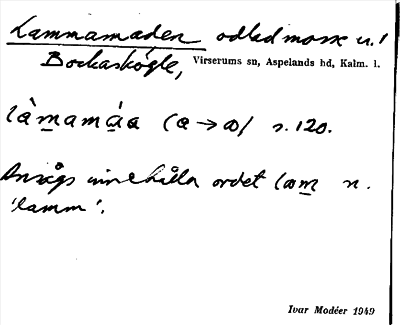 Lammamaden odlad mosse u.
Bockaskögle, Virserums sn, Aspelands hd, Kalm. l.
làmamáa (a → ɷ) s. 120.
Ansågs innehålla ordet lɷm n.
'lamm'.
Ivar Modéer 1949